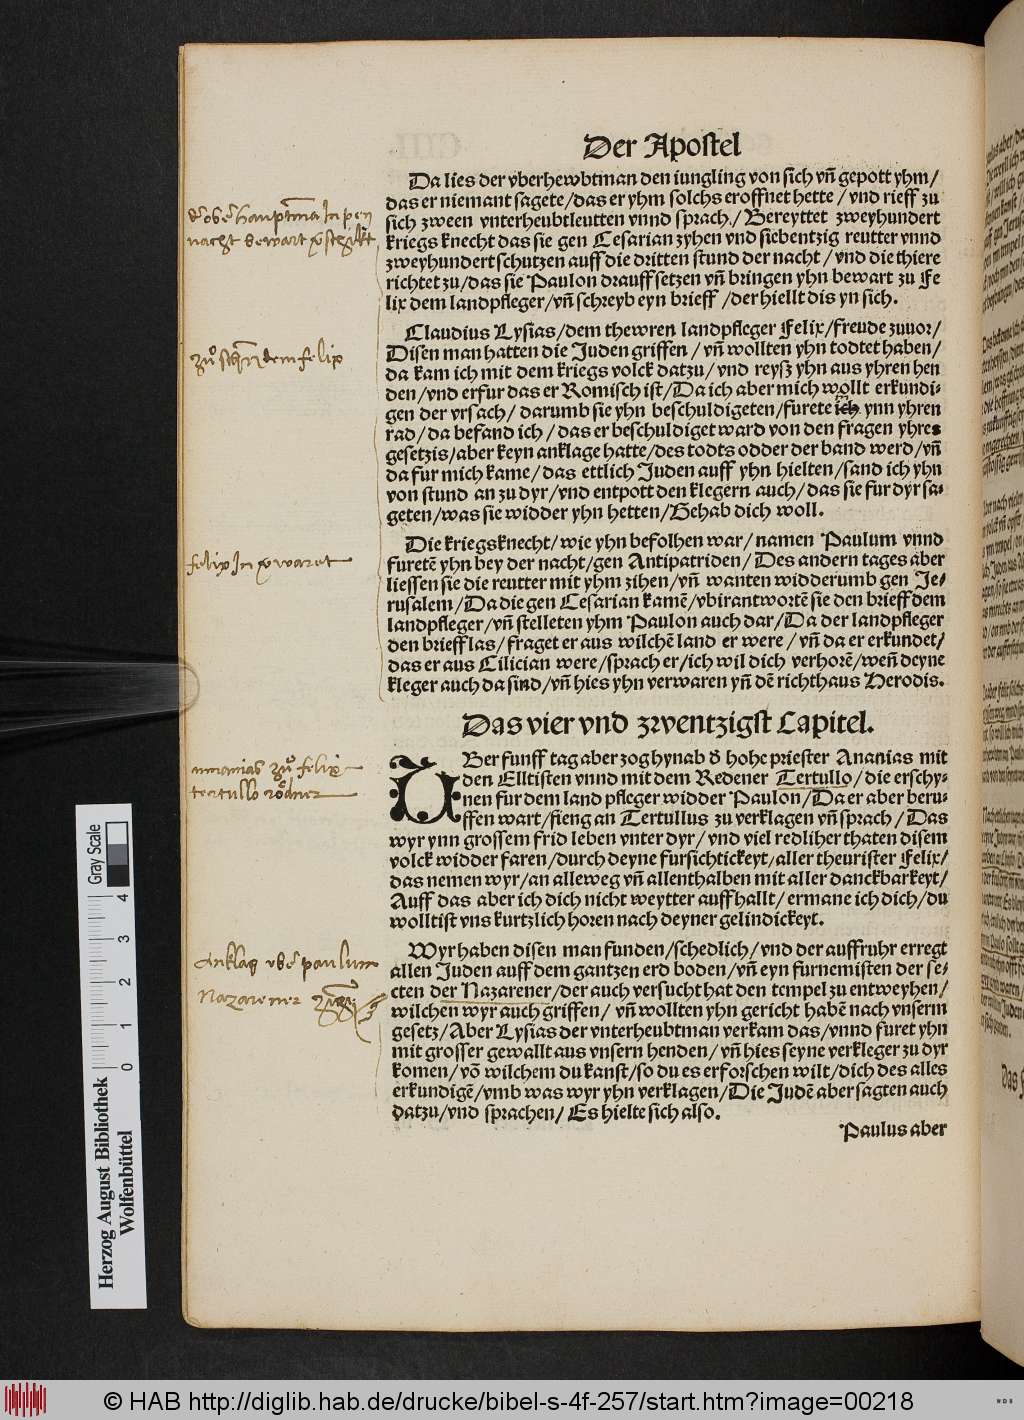 Der Apostel
Da lies der vberhewbtman den iungling von sich vñ gepott yhm/
das er niemant sagete/das er yhm solchs eroffnet hette/vnd rieff zu
sich zween vnterheubtleutten vnnd sprach/Bereyttet zweyhundert
kriegs knecht das sie gen Cesarian zyhen vnd siebentzig reutter vnnd
zweyhundert schutzen auff die dritten stund der nacht/vnd die thiere
richtet zu/das sie Paulon drauff setzen vñ bringen yhn bewart zu Fe
lix dem landpfleger/vñ schreyb eyn brieff/der hiellt dis yn sich.
Claudius Lysias/dem thewren landpfleger Felix/freude zuuor/
Disen man hatten die Juden griffen/vñ wollten yhn todtet haben/
da kam ich mit dem kriegs volck datzu/vnd reysz yhn aus yhren hen
den/vnd erfur das er Romisch ist/Da ich aber mich wollt erkundi-
gen der vrsach/darumb sie yhn beschuldigeten/furete ich ynn yhren
rad/da befand ich/das er beschuldiget ward von den fragen yhres
gesetzis/aber keyn anklage hatte/des todts odder der band werd/vñ
da fur mich kame/das ettlich Juden auff yhn hielten/sand ich yhn
von stund an zu dyr/vnd entpott den klegern auch/das sie fur dyr sa-
geten/was sie widder yhn hetten/Gehab dich woll.
Die kriegsknecht/wie yhn befolhen war/namen Paulum vnnd
furetē yhn bey der nacht/gen Antipatriden/Des andern tages aber
liessen sie die reutter mit yhm zihen/vñ wanten widderumb gen Je-
rusalem/Da die gen Cesarian kamē/vbirantwortē sie den brieff dem
landpfleger/vñ stelleten yhm Paulon auch dar/Da der landpfleger
den brieff las/fraget er aus wilchē land er were/vñ da er erkundet/
das er aus Cilician were/sprach er/ich wil dich verhorē/weñ deyne
kleger auch da sind/vñ hies yhn verwaren yñ dē richthaus Herodis.
Das vier vnd zwentzigst Capitel.
Vber funff tag aber zog hynab d̕ hohe priester Ananias mit
den Elltisten vnnd mit dem Redener Tertullo/die erschy-
nen fur dem land pfleger widder Paulon/Da er aber beru-
ffen wart/fieng an Tertullus zu verklagen vñ sprach/Das
wyr ynn grossem frid leben vnter dyr/vnd viel redlicher thaten disem
volck widder faren/durch deyne fursichtickeyt/aller theurister Felix/
das nemen wyr/an alleweg vñ allenthalben mit aller danckbarkeyt/
Auff das aber ich dich nicht weytter auffhallt/ermane ich dich/du
wolltist vns kurtzlich horen nach deyner gelindickeyt.
Wyr haben disen man funden/schedlich/vnd der auffruhr erregt
allen Juden auff dem gantzen erd boden/vñ eyn furnemisten der se-
cten der Nazarener/der auch versucht hat den tempel zu entweyhen/
wilchen wyr auch griffen/vñ wollten yhn gericht habē nach vnserm
gesetz/Aber Lysias der vnterheubtman verkam das/vnnd furet yhn
mit grosser gewallt aus vnsern henden/vñ hies seyne verkleger zu dyr
komen/vō wilchem du kanst/so du es erforschen wilt/dich des alles
erkundigē/vmb was wyr yhn verklagen/Die Judē aber sagten auch
datzu/vnd sprachen/Es hielte sich also.
Paulus aber
zů felix
felix
zů felix
tertullo
Anklag paulum
Nazarener
Gray Scale
0 1 2 3 4
Herzog August Bibliothek
Wolfenbüttel
© HAB http://diglib.hab.de/drucke/bibel-s-4f-257/start.htm?image=00218